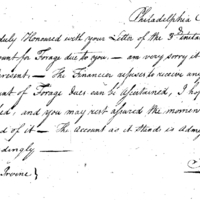 Philadelphia
duly Honoured with your Letter of the 3d
ount for Forage due to you — am very sorry it
present — The Financier refuses to receive any
ount of Forage Dues can be Ascertained, I hop
ed, and you may rest assured the momen
d of it — The Account as it Stands is admi
dingly —
Irvine }